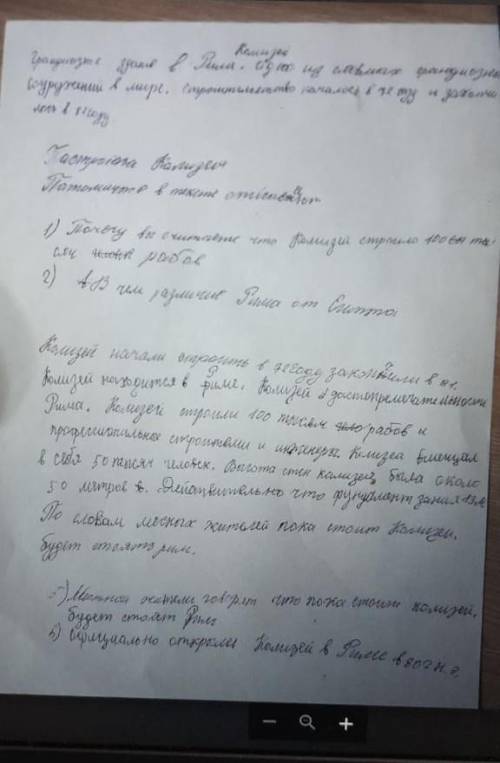 Колизей
здание в Риме. Одно из самых грандиозных
сооружений в мире. строительство началось в 72 году и закончи
лось в 80году
Постройка Колизея
Патомучто в тексте
1) Почему вы считаете что Колизей строило 100 ты
сяч рабов
2) В чем различие Рима от Египта
Колизей начали строить в 72году закончили в
Колизей находится в Риме. Колизей достопремечательности
Рима. Колизей строили 100 тысяч рабов и
професиональных строители и инженеры Колизей вмещал
в себя 50 тысяч человек. Высота стен колизея была около
50 метров. Действительно что фундамент здания 13м
По словам месных жителей пока стоит Колизей.
будет стоять рим.
Местной жители говорят что пока стоит колизей.
будет стоять Рим
Официально открылся Колизей в Риме в 80г н.э.